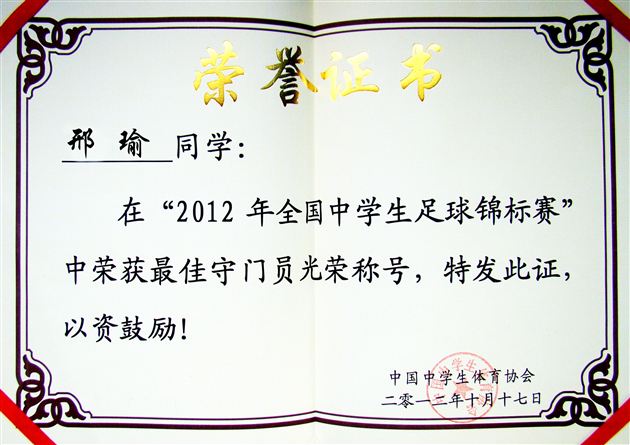 荣誉证书
邢瑜 同学：
在“2012 年全国中学生足球锦标赛”
中荣获最佳守门员光荣称号，特发此证，
以资鼓励！
中国中学生体育协会
二零一二年十月十七日